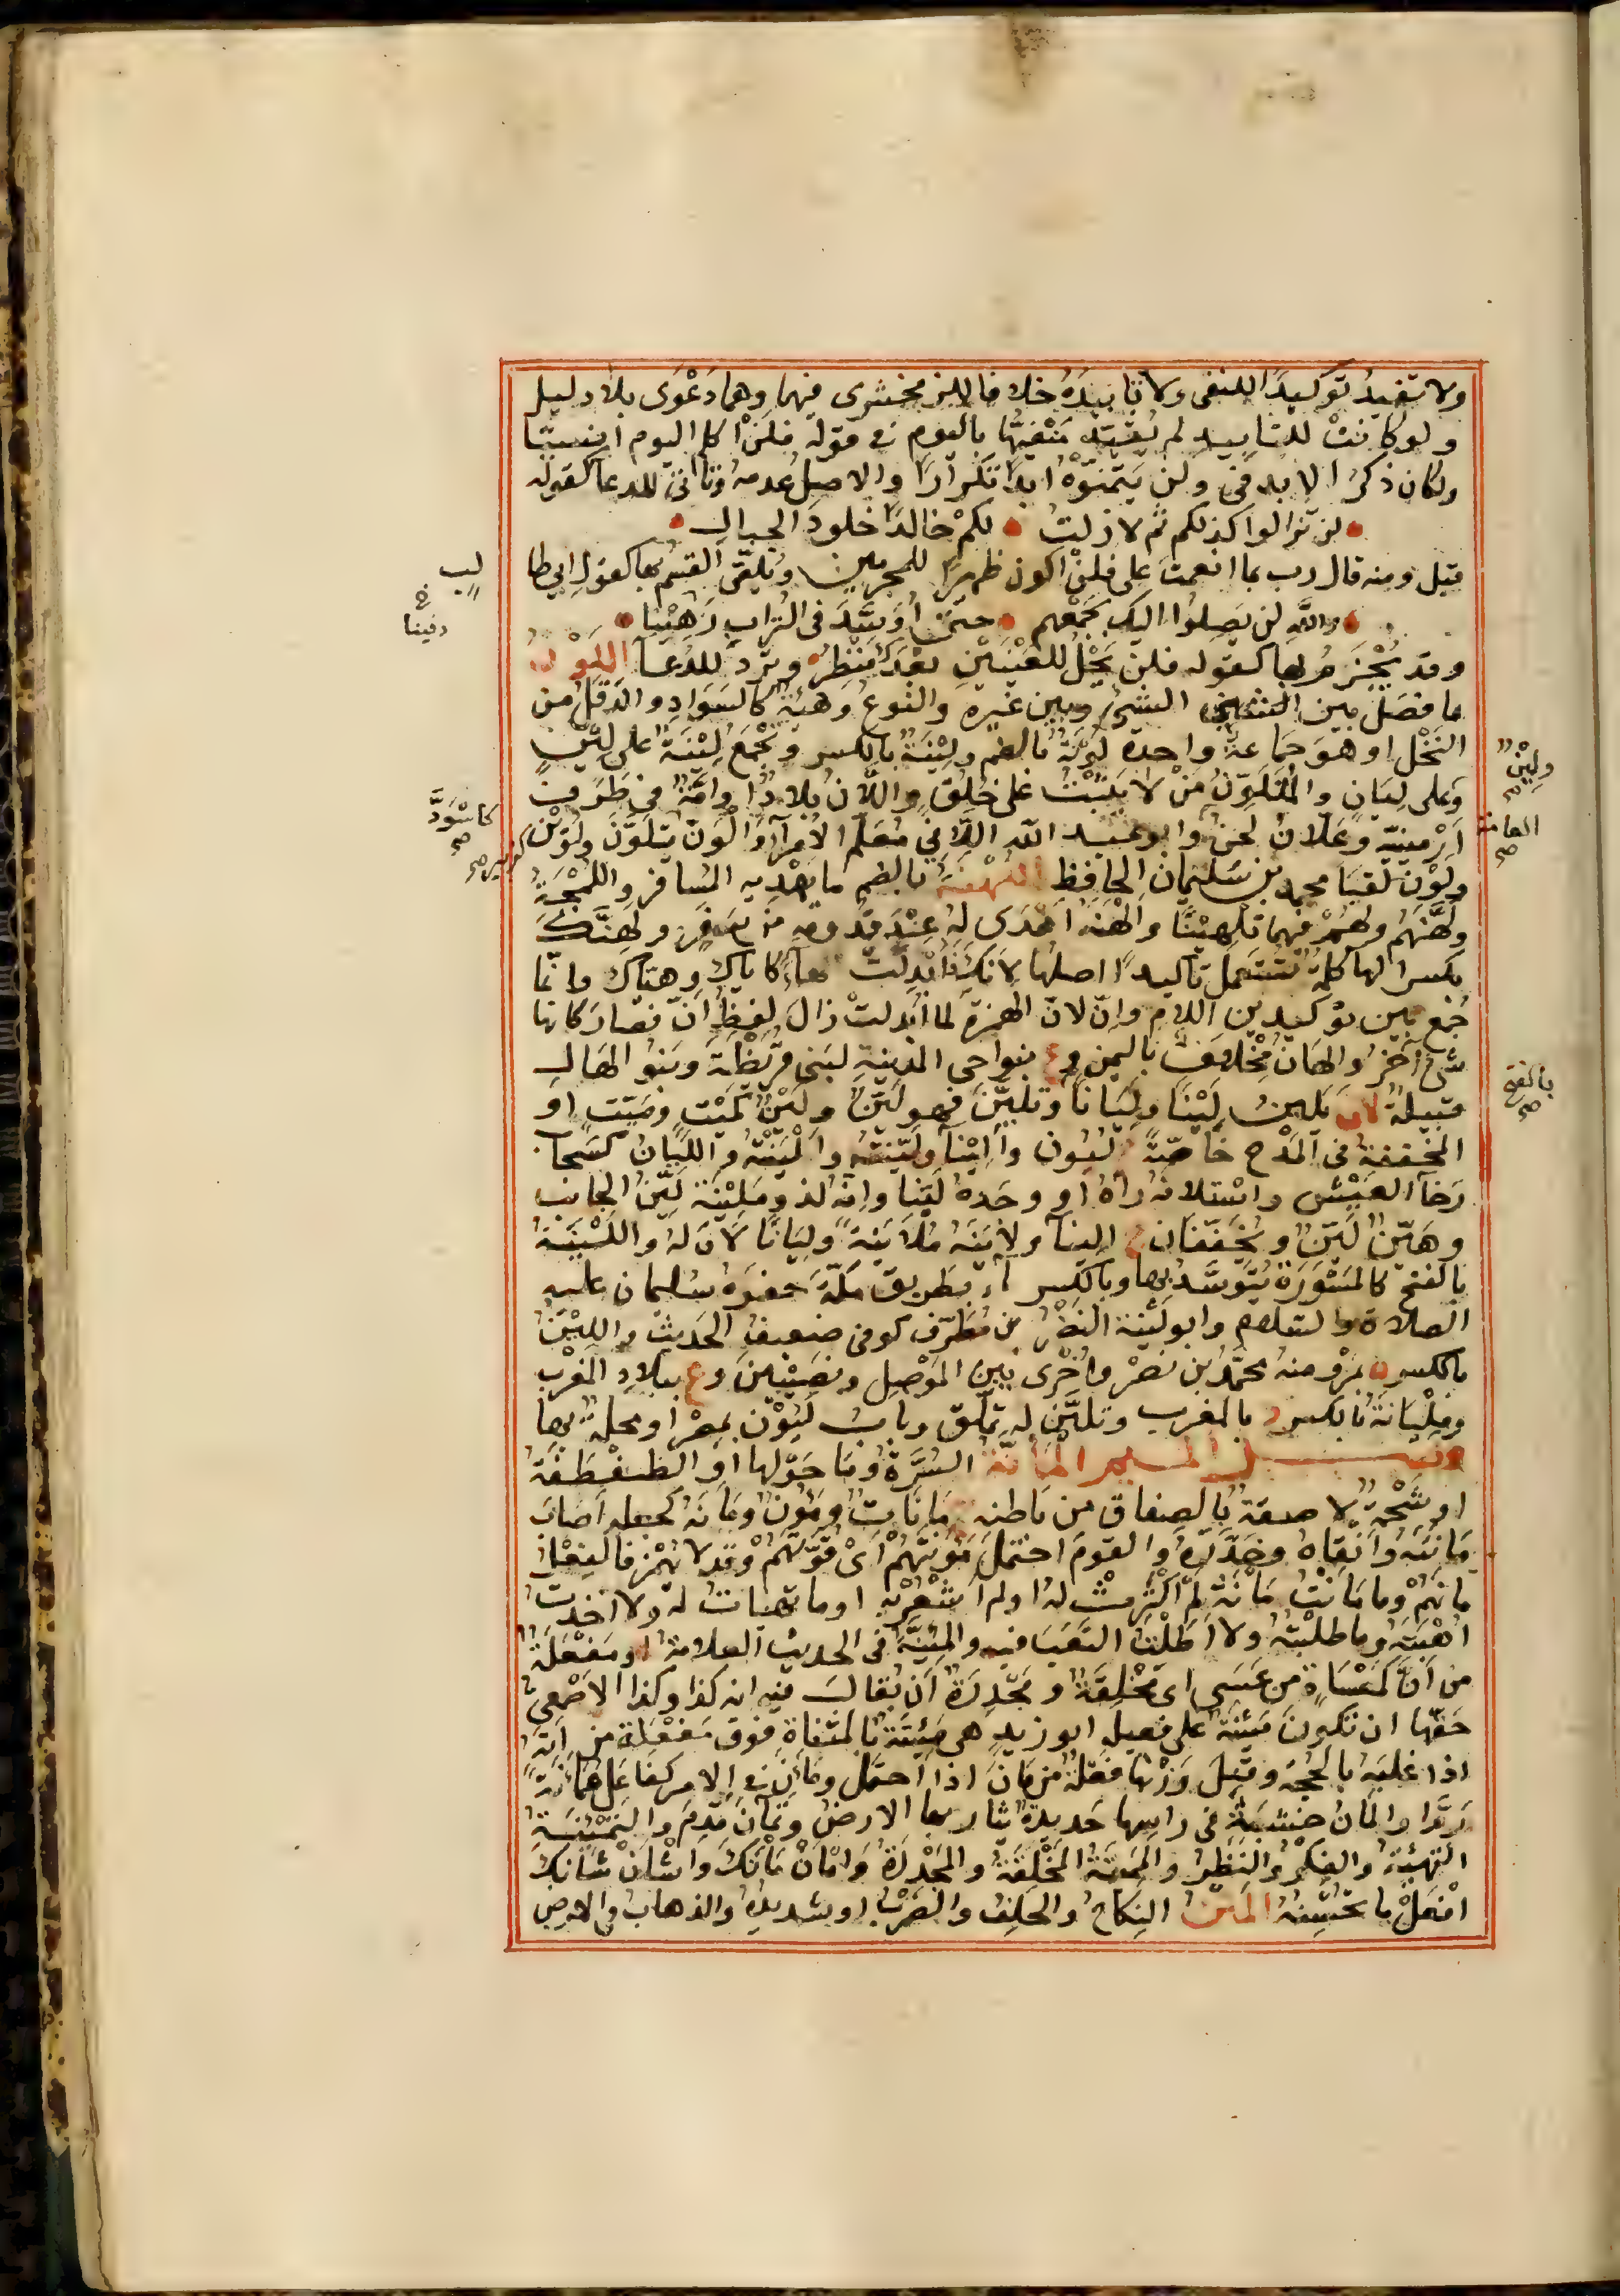 ولا تفيد توكيدا للنفى ولا تابيده خلافا للزمخشرى فيهما وهما دعوى بلا دليل
ولو كانت للتابيد لم يقيد منفيها باليوم فى قوله فلن اكلم اليوم انسيا
ولكان ذكر الابد فى ولن يتمنوه ابدا تكرارا والاصل عدمه وتاتى للدعا كقوله
لن تزالوا كذلكم ثم لا زلت لكم خالدا خلود الجبال
قيل ومنه قال رب بما انعمت على فلن اكون ظهيرا للمجرمين وتلقى القسم بها كقول ابى طا
لب
والله لن يصلوا اليك بجمعهم حتى اوسد فى التراب رهينا
دفينا
وقد يجزم بها كقوله فلن يحل للعينين بعدك منظر وترد للدعا اللون
ما فصل بين الشىء وبين غيره والنوع وهيئة كالسواد والدقل من
النخل او هو جماعة واحدة لونة بالضم ولينة بالكسر وتجمع لينة على لين
ولين
وعلى ليان والمتلون من لا يثبت على خلق واللان بلاد وامة فى طرف
كاسود
ارمينية وعلان لحن وابو عبد الله اللانى معلم الامرا والون تلون ولوين
العامة
كزبير
ولون لقبا محمد بن سليمان الحافظ اللهنة بالضم ما يهديه المسافر واللمجة
ولهنهم ولهم فيهما تلهينا والهنه اهدى له عند قدومه من سفر ولهنك
بكسر الها كلمة تستعمل تاكيدا اصلها لانك فابدلت ها كاياك وهياك وانما
جمع بين توكيدين اللام وان لان الهمزة لما ابدلت زال لفظ ان فصار كانها
شى اخر والهان مخلاف باليمن وع بنواحى المدينة لبنى قريظة وبنو الهان
قبيلة لان يلين لينا وليانا وتلين فهو لين ولين كميت وميت او
بالفتح
المخففة فى المدح خاصة ج لينون واليناء ولينته والينته والليان كسحاب
رخا العيش واستلانه راه او وحده لينا وانه لذو ملينة لين الجانب
وهين لين ويخففان ج الينا ولاينه ملاينة وليانا لان له واللينة
بالفتح كالمسورة يتوسد بها وبالكسر ماء بطريق مكة حفره سليمان عليه
الصلاة والسلام وابو لينة النضر بن مطرف كوفى ضعيف الحديث واللين
بالكسر ة بمرو منه محمد بن نصر واخرى بين الموصل ونصيبين وع ببلاد المغرب
ومليانة بالكسر د بالمغرب وتلين له تملق وباب ليون بمصر او محلة بها
فصل الميم المانة السرة وما حولها او الطفطفة
او شحمة لاصقة بالصفاق من باطنه ج مانات ومون ومانه كجعله اصاب
مانته واتقاه وحذره والقوم احتمل مونتهم اى قوتهم وقد لا تهمز فالفعل
مانهم وما مانت مانه لم اكترث له او لم اشعر به او ما تهيات له ولا اخذت
اهبته وما طلبته ولا اطلت التعب فيه والمئنة فى الحديث العلامة او مفعلة
من ان كمعساة من عسى اى مخلقة ومجدرة ان يقال فيه انه كذا وكذا الاصمعى
حقها ان تكون مئينة على فعيلة ابو زيد هى مئتة بالمثناة فوق مفعلة من اته
اذا غلبه بالحجة وقيل وزنها فعلة من مان اذا احتمل وماءن فى الامر كفاعل ممانة
روا والمان خشبة فى راسها حديدة تثار بها الارض وتمان قدم والتمئنة
التهيئة والفكر والنظر والمئنة المخلقة والمجدرة وامان مانك واشان شانك
افعل ما تحسنه المتن النكاح والحلف والضرب او شديده والذهاب فى الارض